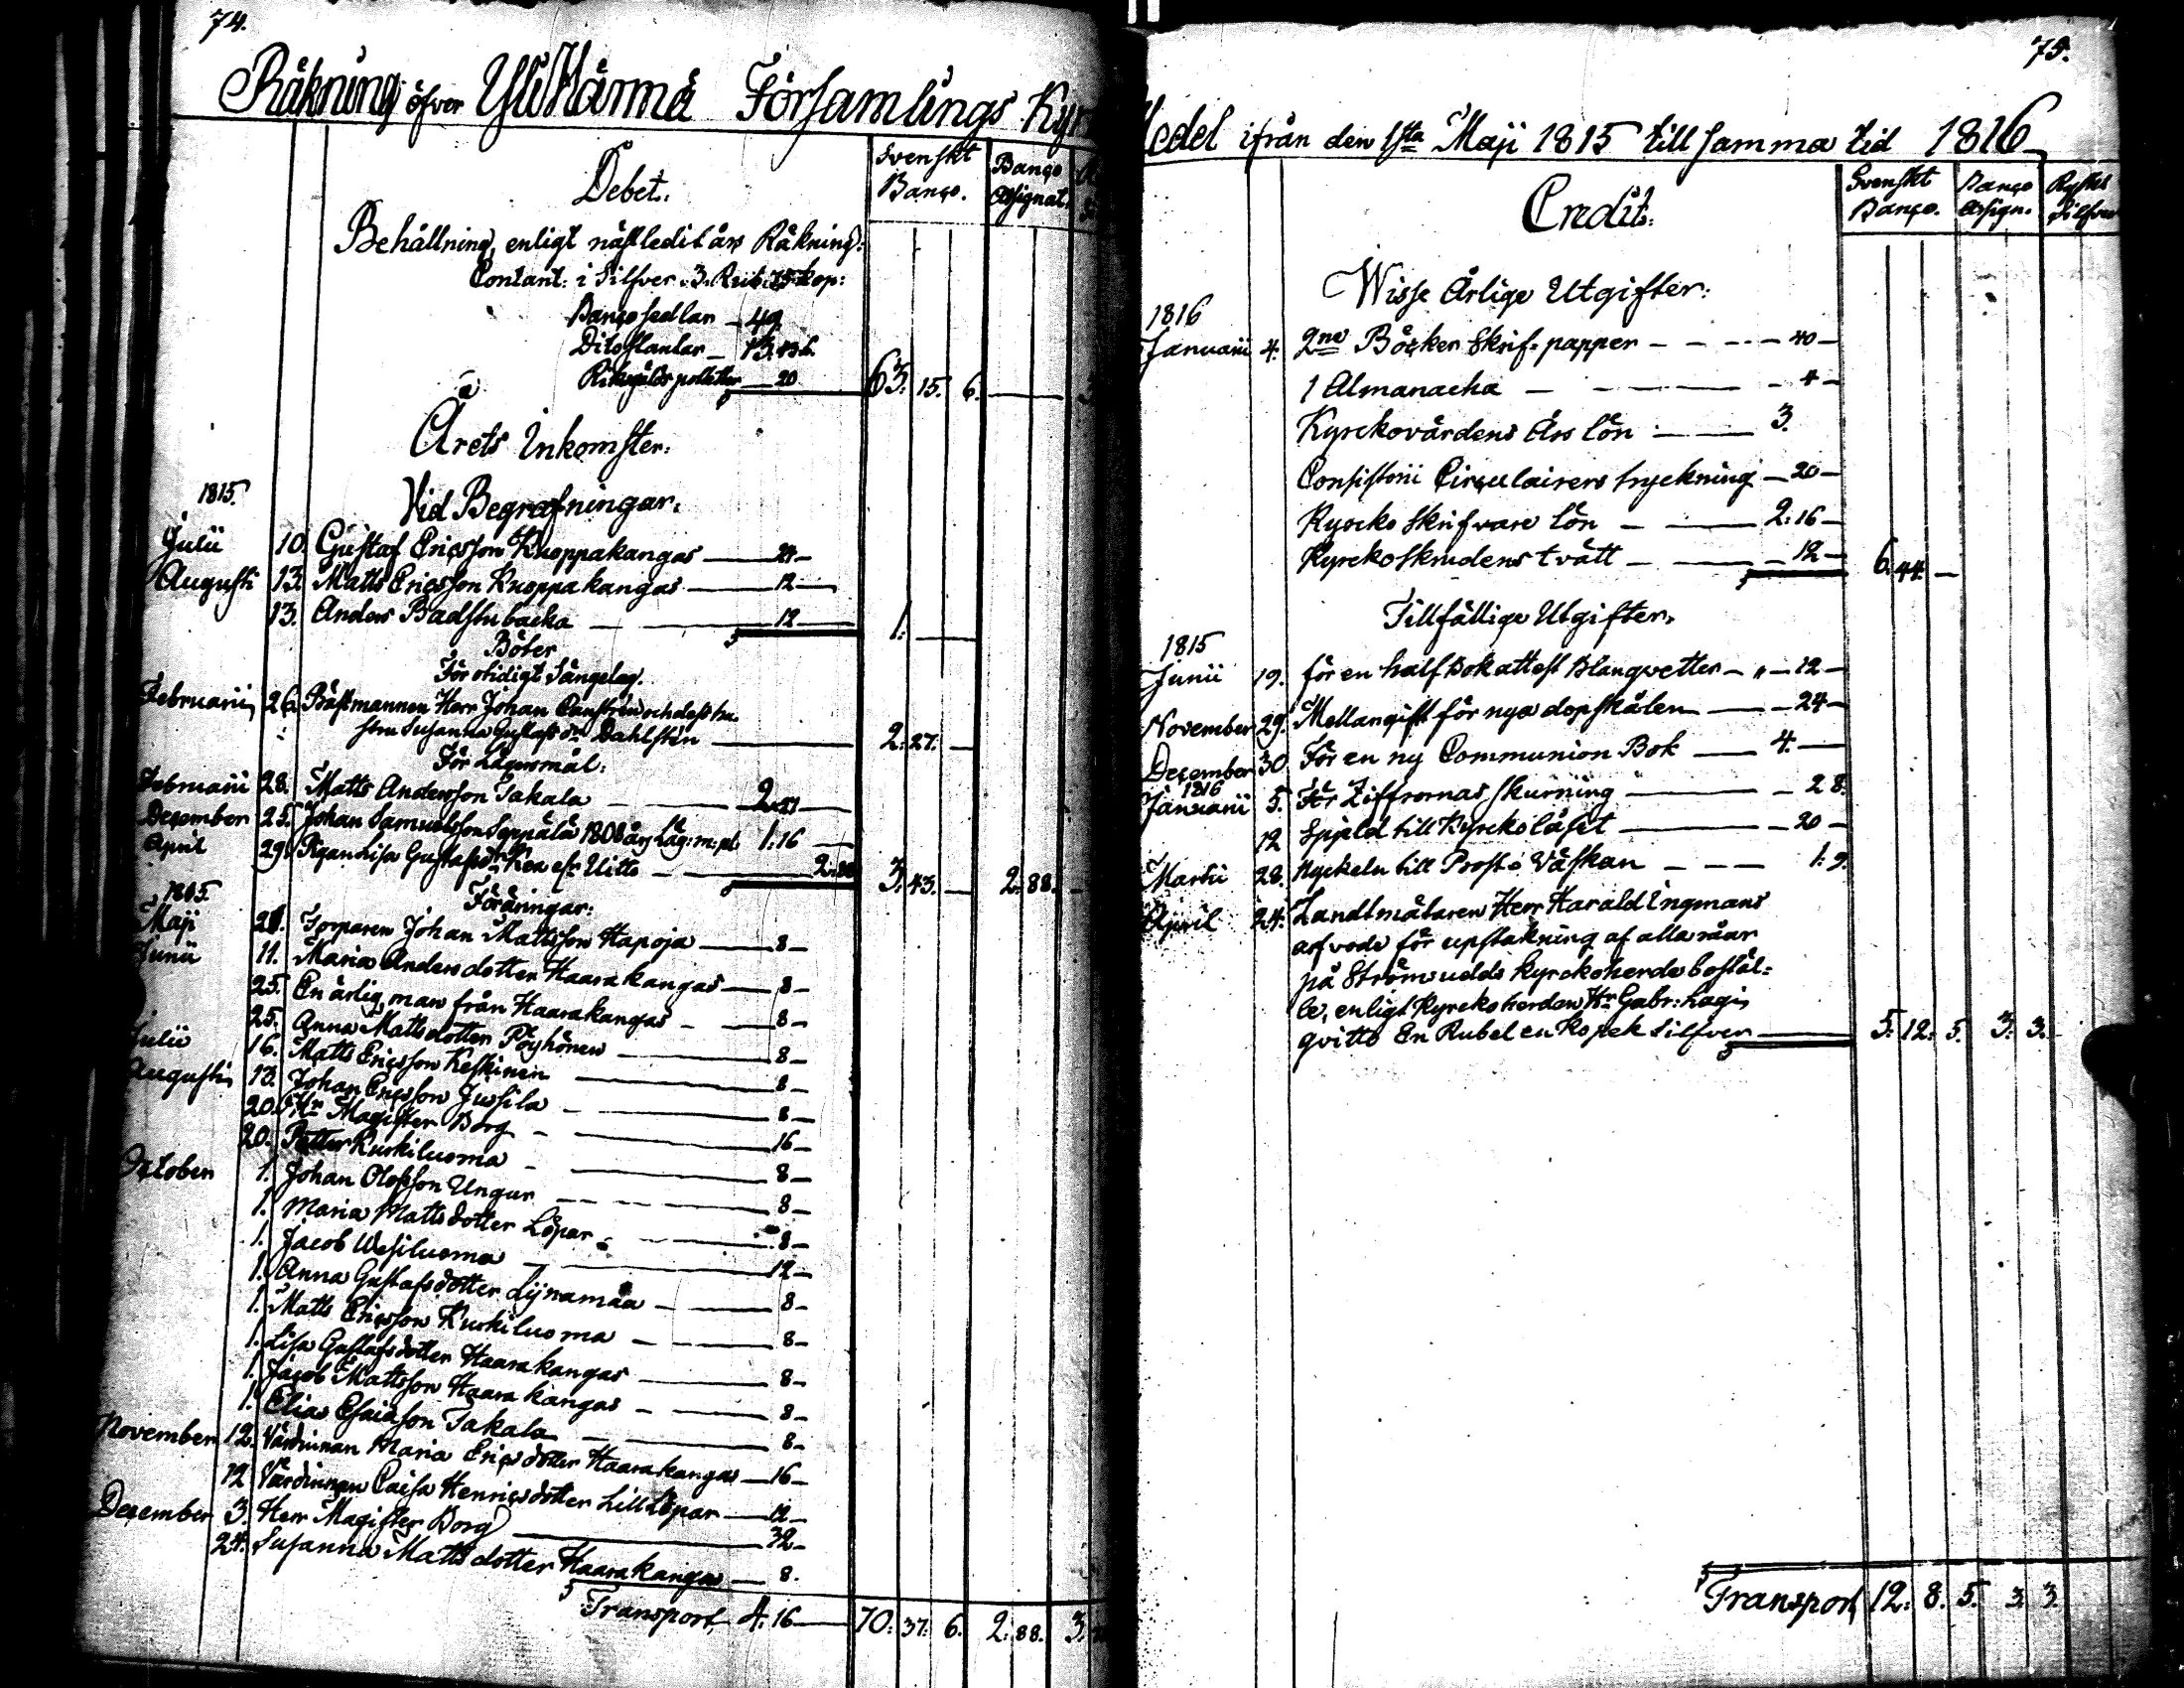 74.
Räkning öfver Ylihärmä Församlings Kyr
Debet.
Svenskt Banço.
Banço Assignat.
Behållning, enligt nästledit års Räkning:
Contant: i Silfver 3. Rub: 75 kop:
Bançosedlar — 49.
Dito slantar —
Riksgälds polletter — 20
63. 15. 6.
Årets Inkomster.
1815.
Vid Begrafningar.
Julii 10. Gustaf Ericsson Knoppakangas — 24 —
Augusti 13. Matts Ericsson Knoppakangas — 12 —
13. Anders Badstubacka — 12 — 1. —
Böter
För otidigt Sängelag.
Februarii 26. Båtsmannen Herr Johan och dess hu-
stru Susanna Gustafsdr Dahlsten — 2. 27. —
För Lägersmål:
Februarii 28. Matts Andersson Takala — 2: 27 —
December 25. Johan Samuelsson Seppälä 1808 års Läg: m: pl: 1: 16 —
April 29. Pigan Lisa Gustafsdr Kea Uitto — 2: 88 3. 43. — 2. 88. —
Föräringar:
1815.
Maji 21. Torparen Johan Mattsson Hapoja — 8 —
Junii 11. Maria Andersdotter Haarakangas — 8 —
25. En ärlig man från Haarakangas — 8 —
25. Anna Mattsdotter Pöyhönen — 8 —
Julii 16. Matts Ericsson Keskinen — 8 —
Augusti 13. Johan Ericsson Jussila — 8 —
20. Hr Magister Borg — 16 —
20. Petter Kuoxiluoma — 8 —
October 1. Johan Olofsson Ungur — 8 —
1. Maria Mattsdotter Löpar — 8 —
1. Jacob Wesiluoma — 12 —
1. Anna Gustafsdotter Lijnamaa — 8 —
1. Matts Ericsson Kuskiluoma — 8 —
1. Lisa Gustafsdotter Haarakangas — 8 —
1. Jacob Mattsson Haarakangas — 8 —
1. Elias Esaiason Takala — 8 —
November 12. Värdinnan Maria Ericsdotter Haarakangas — 16 —
12 Värdinnan Caisa Henricsdotter Lill Löpar — 12 —
December 3. Herr Magister Borg — 32 —
24. Susanna Mattsdotter Haarakangas — 8.
Transport, 4. 16 — 70. 37. 6. 2. 88. 3.
75.
Medel ifrån den 1sta Maji 1815 till samma tid 1816
Credit:
Svenskt Banço.
Banço Assign.
Ryskt Silfver
Wisse Årlige Utgifter:
1816
Januarii 4. 2ne Böcker Skrif-papper — — 40 —
1 Almanacha — — 4 —
Kyrckovärdens Års lön — 3.
Consistorii Circulairers tryckning — 20 —
Kyrcko Skrifvare lön — 2: 16 —
Kyrckoskrudens tvätt — — 12 — 6. 44. —
Tillfällige Utgifter.
1815
Junii 19. för en half Bok attest Blanqvetter — „ — 12 —
November 29. Mellangift för nya dopskålen — 24 —
December 30 För en ny Communion Bok — 4. —
1816
Januarii 5. För Ziffrornas skurning — 28.
12 Spjeld till Kyrckolåset — 20 —
Martii 28. Nyckeln till Prost-Väskan — 1. 9.
April 24. Landtmätaren Herr Harald Ingmans
arfvode för upstakning af alla råar
på Strömsudds kyrckoherde bostäl-
le, enligt Kyrckoherden Hr Gabr: Lagi
qvitto En Rubel en Kopek Silfver — 5. 12. 5. 3. 3.
Transport, 12. 8. 5. 3. 3